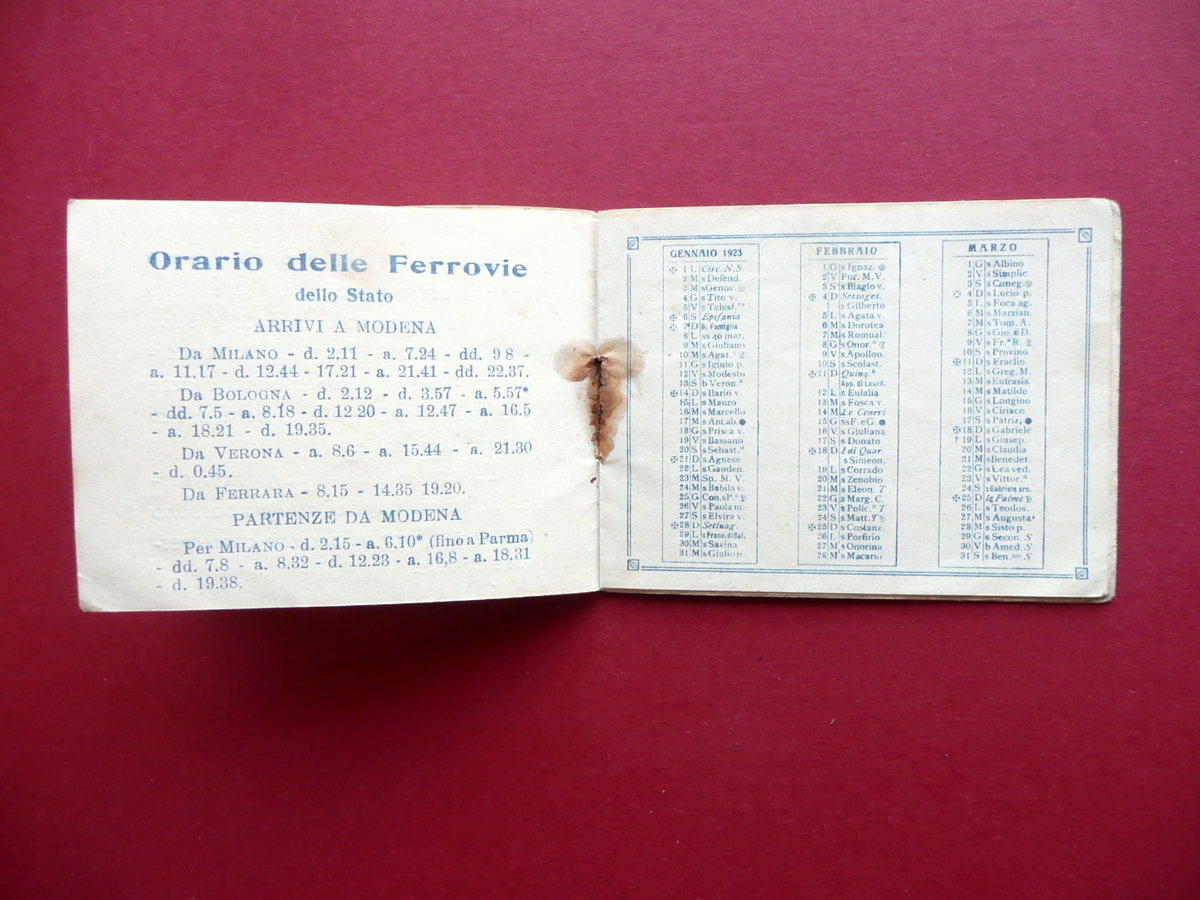 Orario delle Ferrovie
dello Stato
ARRIVI A MODENA
Da MILANO - d. 2.11 - a. 7.24 - dd. 9 8 -
a. 11.17 - d. 12.44 - 17.21 - a. 21.41 - dd. 22.37.
Da BOLOGNA - d. 2.12 - d. 3.57 - a. 5.57*
- dd. 7.5 - a. 8.18 - d. 12 20 - a. 12.47 - a. 16.5
- a. 18.21 - d. 19.35.
Da VERONA - a. 8.6 - a. 15.44 - a. 21.30
- d. 0.45.
Da FERRARA - 8.15 - 14.35 19.20.
PARTENZE DA MODENA
Per MILANO - d. 2.15 - a. 6.10* (fino a Parma)
- dd. 7.8 - a. 8,32 - d. 12.23 - a. 16,8 - a. 18.31
- d. 19.38.
GENNAIO 1923
✠ 1 L Circ. N.S.
2 M s Defend.
3 M s Genov.
4 G s Tito v.
5 V s Telesf.
✠ 6 S Epifania
✠ 7 D S. Famiglia
8 L ss 40 mar.
9 M s Giuliano
10 M s Agat.
11 G s Iginio p.
12 V s Modesto
13 S b Veron.ª
✠ 14 D s Ilario v.
15 L s Mauro
16 M s Marcello
17 M s Ant.ab. ●
18 G s Prisca v.
19 V s Bassano
20 S s Sebast.º
✠ 21 D s Agnese
22 L s Gauden.
23 M Sp. M. V.
24 M s Babila v.
25 G Con.s P.º
26 V s Paola m.
27 S s Elvira v.
✠ 28 D Settuag.
29 L s Franc. di Sal.
30 M s Savina
31 M s Giulio p.
FEBBRAIO
1 G s Ignaz.
2 V Pur. M.V.
3 S s Biagio v.
✠ 4 D Sessages.
s Gilberto
5 L s Agata v.
6 M s Dorotea
7 M s Romual.
8 G s Onor.º
9 V s Apollon.
10 S s Scolast.
✠ 11 D Quinq.ª
App. di Lourd.
12 L s Eulalia
13 M s Fosca v.
14 M Le Ceneri
15 G ss F. e G. ●
16 V s Giuliana
17 S s Donato
✠ 18 D I di Quar.
s Simeon.
19 L s Corrado
20 M s Zenobio
21 M s Eleon. T
22 G s Marg. C.
23 V s Polic.º T
24 S s Matt. T
✠ 25 D s Costanz.
26 L s Porfirio
27 M s Onorina
28 M s Macario
MARZO
1 G s Albino
2 V s Simplic.
3 S s Cuneg.
✠ 4 D s Lucio p.
5 L s Foca ag.
6 M s Marzian.
7 M s Tom. A.
8 G s Gio. d D.
9 V s Fr.ª R.
10 S s Provino
✠ 11 D s Eraclio
12 L s Greg. M.
13 M s Eufrasia
14 M s Matilde
15 G s Longino
16 V s Ciriaco
17 S s Patriz. ●
✠ 18 D s Gabriele
† 19 L s Giusep.
20 M s Claudia
21 M s Benedet.
22 G s Lea ved.
23 V s Vittor.º
24 S s Gabriele arc.
✠ 25 D le Palme
26 L s Teodos.
27 M s Augusta
28 M s Sisto p.
29 G s Secon. S
30 V b Amed. S
31 S s Ben. S